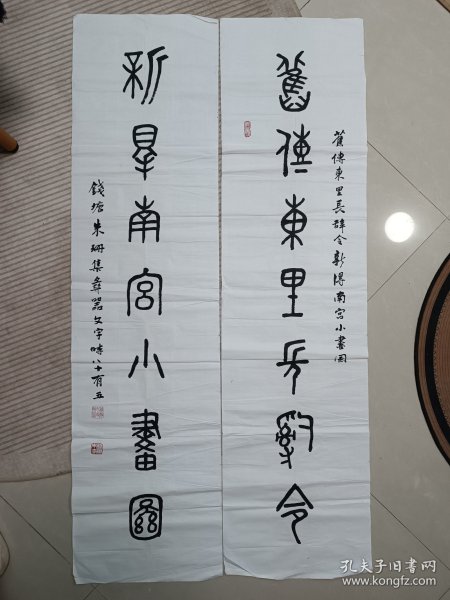 舊傳東里長辭令
舊傳東里長辭令新得南宮小畫圖
新得南宮小畫圖
錢塘朱珊集彝器文字時八十有五
孔夫子旧书网
www.kongfz.com